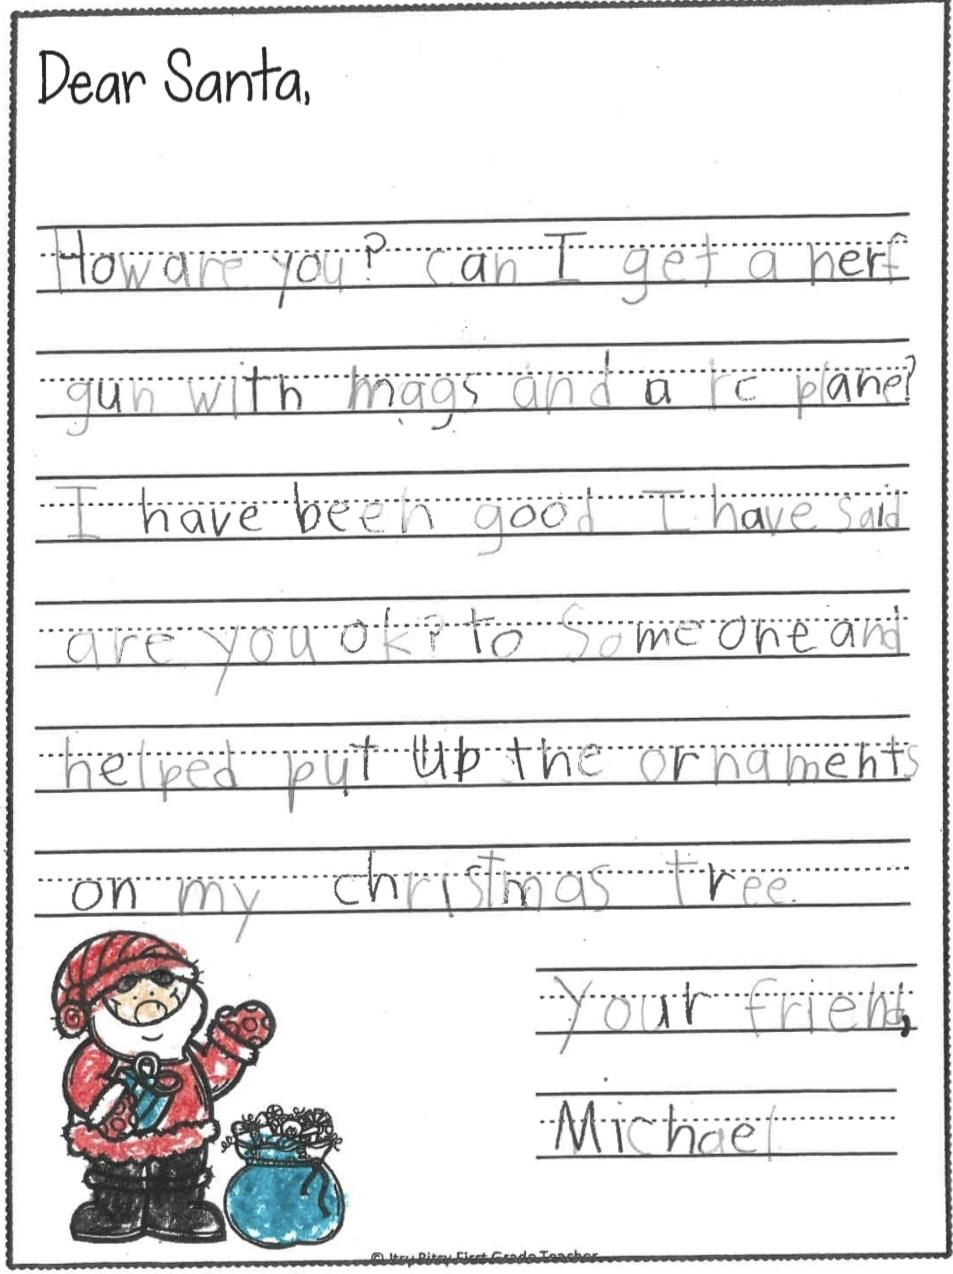 Dear Santa,
How are you? can I get a nerf
gun with mags and a rc plane?
I have been good I have said
are you ok? to Someone and
helped put up the ornaments
on my christmas tree.
Your friend,
Michael
© Itsy Bitsy First Grade Teacher